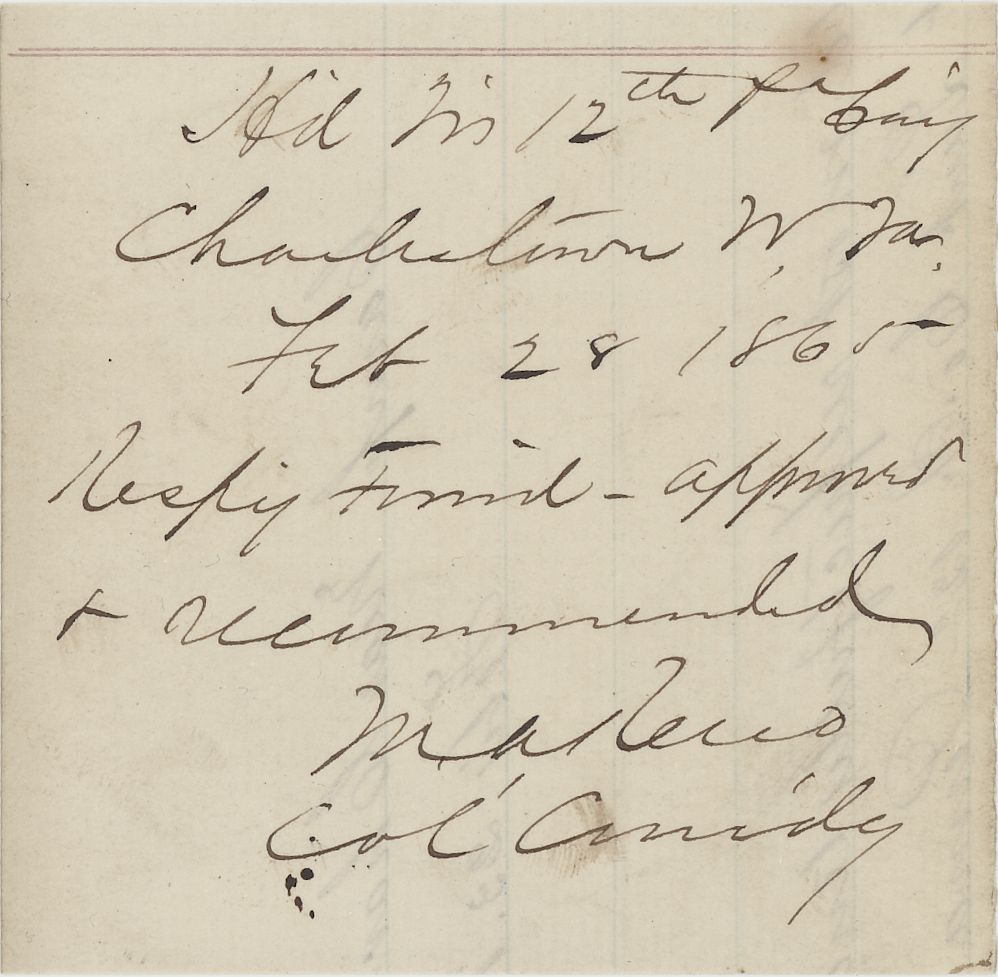 Hd Qrs 12th Pa Cavy
Charlestown W. Va.
Feb 28 1865
Respy Forwd - approved
& recommended
M. A. Reno
Col' Comdg